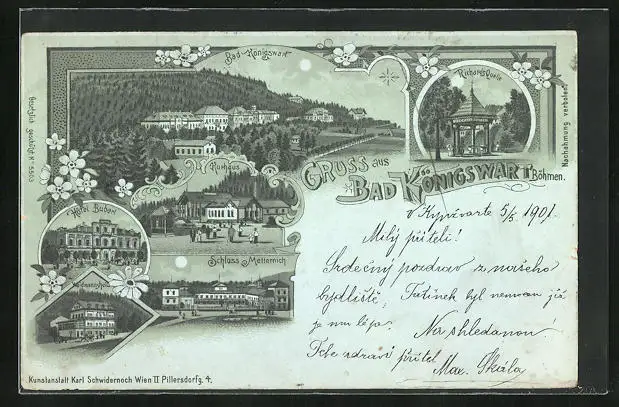 Bad-Königswart
Richards Quelle
Kurhaus
Gruss aus
Bad Königswart
Böhmen.
Hotel Buberl
Schloss Metternich
Gesetzlich geschützt No 5503
Nachahmung verboten.
V Kynžvartě 5/8 1901.
Milý příteli!
Srdečný pozdrav z našeho
bydliště, Tatínek byl nemocen již
je mu lépe. Na shledanou!
Tebe zdraví přítel Max. Škála
Kunstanstalt Karl Schwidernoch Wien II Pillersdorfg. 4.